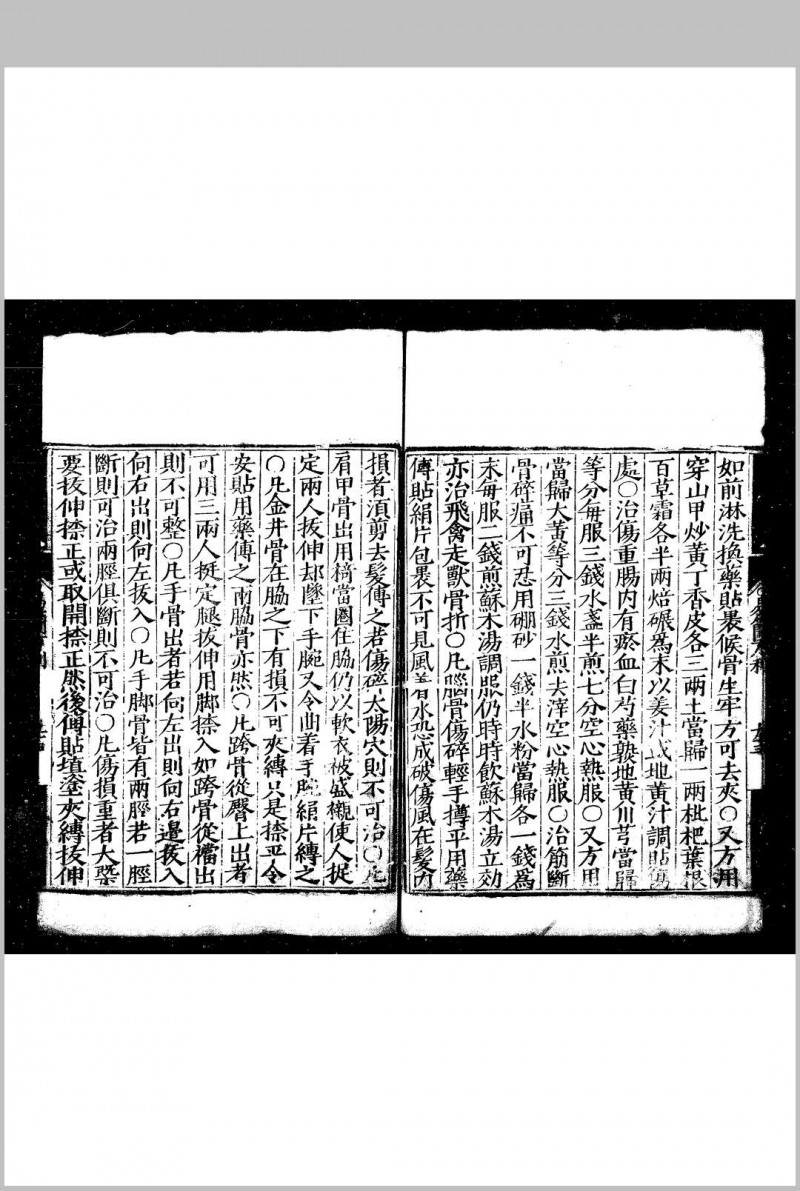 如前淋洗換藥貼裹候骨生牢方可去夾○又方用
穿山甲炒黃丁香皮各三兩土當歸一兩枇杷葉根
百草霜各半兩焙碾為末以姜汁或地黃汁調貼傷
處○治傷重腸內有瘀血白芍藥熟地黃川芎當歸
等分每服三錢水盞半煎七分空心熱服○又方用
當歸大黃等分三錢水煎去滓空心熱服○治筋斷
骨碎痛不可忍用硼砂一錢半水粉當歸各一錢為
末每服二錢煎蘇木湯調服仍時時飲蘇木湯立効
亦治飛禽走獸骨折○凡腦骨傷碎輕手摶平用藥
傅貼絹片包裹不可見風着水恐成破傷風在髮內
損者須剪去髮傅之若傷碎太陽穴則不可治○凡
肩甲骨出用椅當圈住脇仍以軟衣被盛襯使人捉
定兩人拔伸却墜下手腕又令曲着手腕絹片縛之
○凡金井骨在脇之下有損不可夾縛只是捺平令
安貼用藥傅之兩脇骨亦然○凡跨骨從臀上出者
可用三兩人挺定腿拔伸用脚捺入如跨骨從襠出
則不可整○凡手骨出者若向左出則向右邊拔入
向右出則向左拔入○凡手脚骨皆有兩脛若一脛
斷則可治兩脛俱斷則不可治○凡傷損重者大槩
要拔伸捺正或取開捺正然後傅貼填塗夾縛拔伸